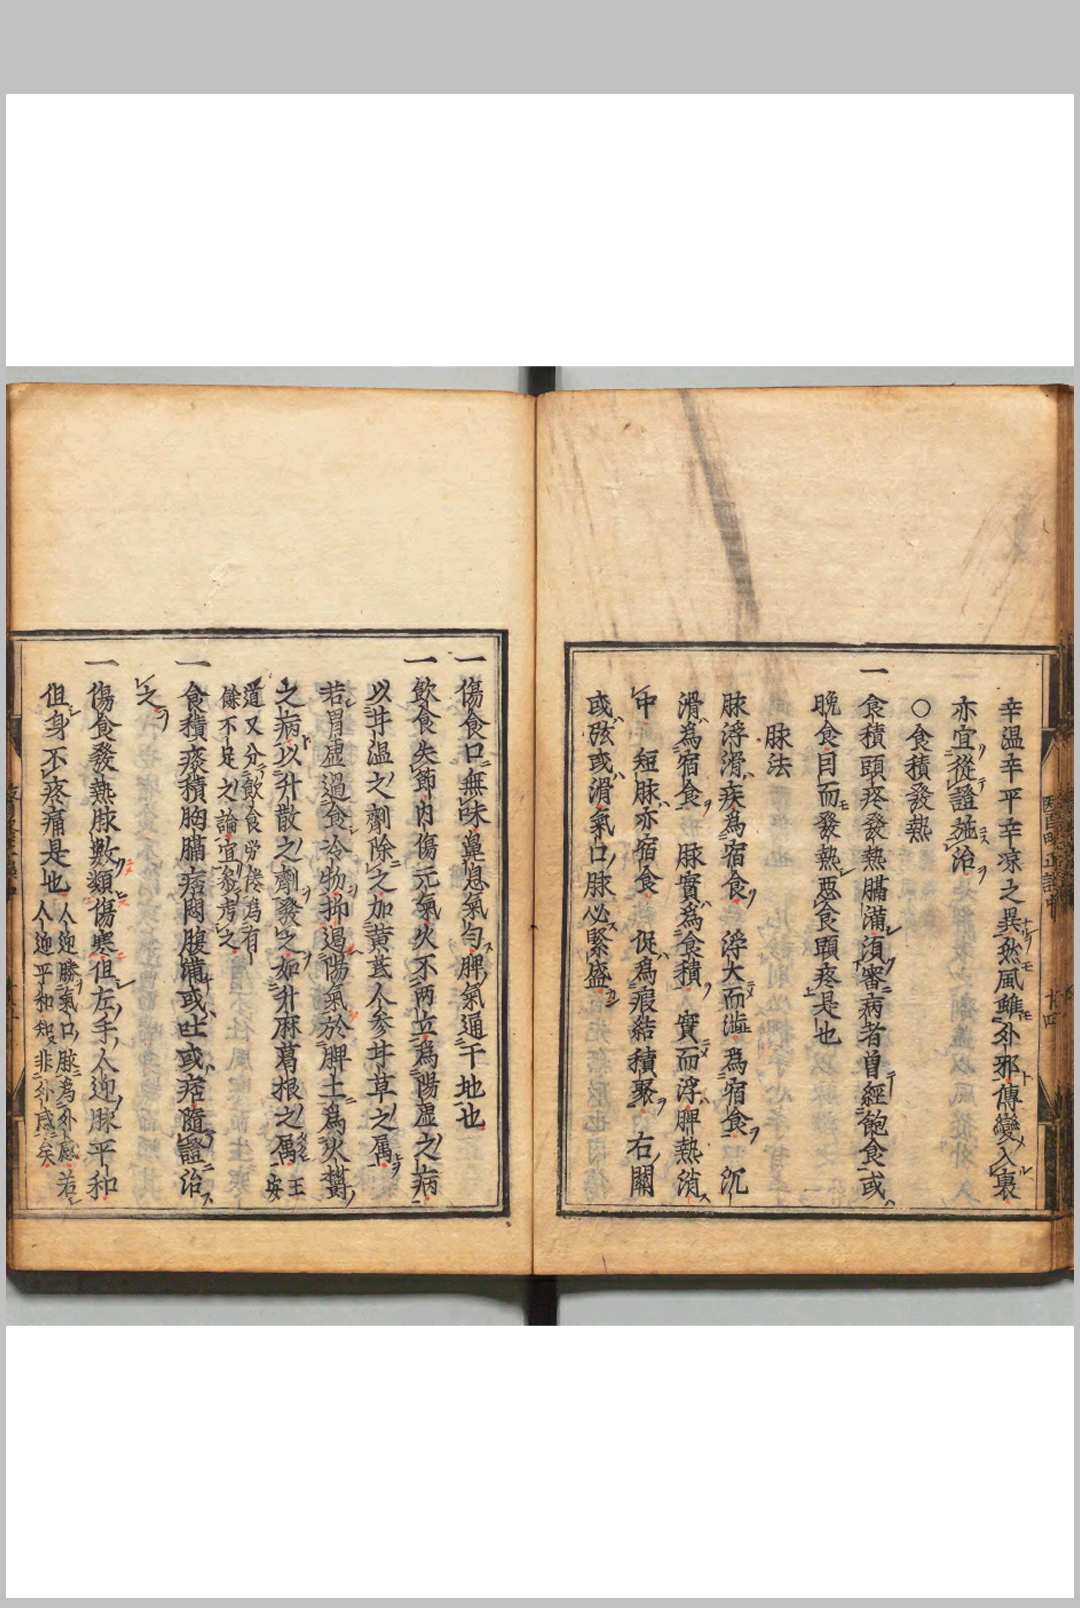 辛温辛平辛凉之異然風雖外邪傳變入裏
亦宜從證施治
〇食積發熱
一食積頭疼發熱膈滿須審病者曽經飽食或
晩食目而發熱惡食頭疼是也
脉法
脉浮滑疾為宿食 浮大而澁為宿食 沉
滑為宿食 脉實為食積 實而浮脾熱消
中 短脉亦宿食 促為痕結積聚 右關
或弦或滑氣口脉必緊盛
一傷食口無味鼻息氣匀脾氣通干地也
一飲食失節内傷元氣火不両立為陽虚之病
以甘温之劑除之加黄芪人参甘草之属
若胃虚過食冷物抑遏陽氣於脾土為火欝
之病以升散之劑發之如升麻葛根之属 王安
道又分飲食勞倦為有
餘不足之論宜參考之
一食積痰積胸膈痞悶腹滿或吐或痞隨證治
之
一傷食發熱脉數類傷寒但左手人迎脉平和
但身不疼痛是也 人迎勝氣口脉為外感若
人迎平和知非外感矣